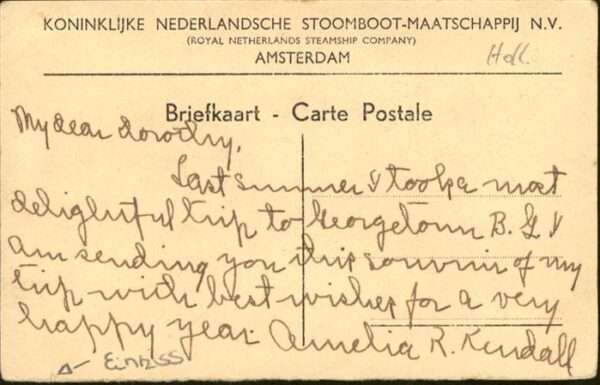 KONINKLIJKE NEDERLANDSCHE STOOMBOOT-MAATSCHAPPIJ N.V.
(ROYAL NETHERLANDS STEAMSHIP COMPANY)
AMSTERDAM
Holl.
Briefkaart - Carte Postale
My dear Dorothy,
Last summer I took a most
delightful trip to Georgetown B.G. I
am sending you this souvenir of my
trip with best wishes for a very
happy year. Amelia R. Kendall